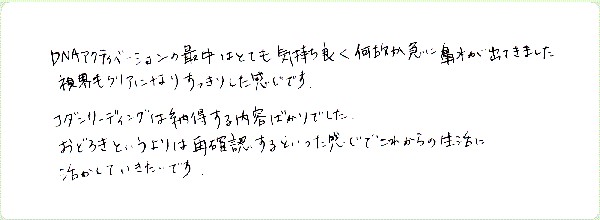 DNAアクティベーションの最中はとても気持ち良く何故か急に鼻水が出てきました
視界もクリアになりすっきりした感じです.
コダンリーディングは納得する内容ばかりでした.
おどろきというよりは再確認するといった感じでこれからの生活に
活かしていきたいです.